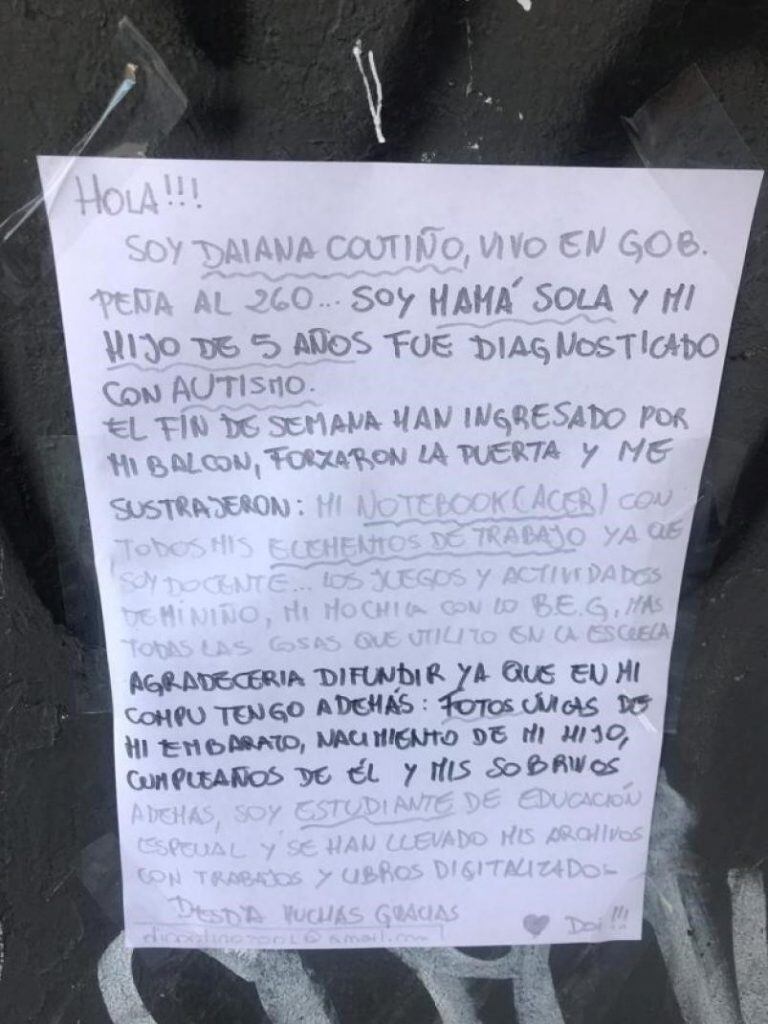 HOLA!!!
SOY DAIANA COUTIÑO, VIVO EN GOB.
PEÑA AL 260... SOY MAMÁ SOLA Y MI
HIJO DE 5 AÑOS FUE DIAGNOSTICADO
CON AUTISMO.
EL FIN DE SEMANA HAN INGRESADO POR
MI BALCON, FORZARON LA PUERTA Y ME
SUSTRAJERON: MI NOTEBOOK (ACER) CON
TODOS MIS ELEMENTOS DE TRABAJO YA QUE
SOY DOCENTE... LOS JUEGOS Y ACTIVIDADES
DE MI NIÑO, MI MOCHILA CON LO B.E.G, MAS
TODAS LAS COSAS QUE UTILITO EN LA ESCUELA
AGRADECERIA DIFUNDIR YA QUE EN MI
COMPU TENGO ADEMÁS: FOTOS ÚNICAS DE
MI EMBARAZO, NACIMIENTO DE MI HIJO,
CUMPLEAÑOS DE ÉL Y MIS SOBRINOS
ADEMAS, SOY ESTUDIANTE DE EDUCACIÓN
ESPECIAL Y SE HAN LLEVADO MIS ARCHIVOS
CON TRABAJOS Y LIBROS DIGITALIZADOS
DESDA MUCHAS GRACIAS
Dai!!!